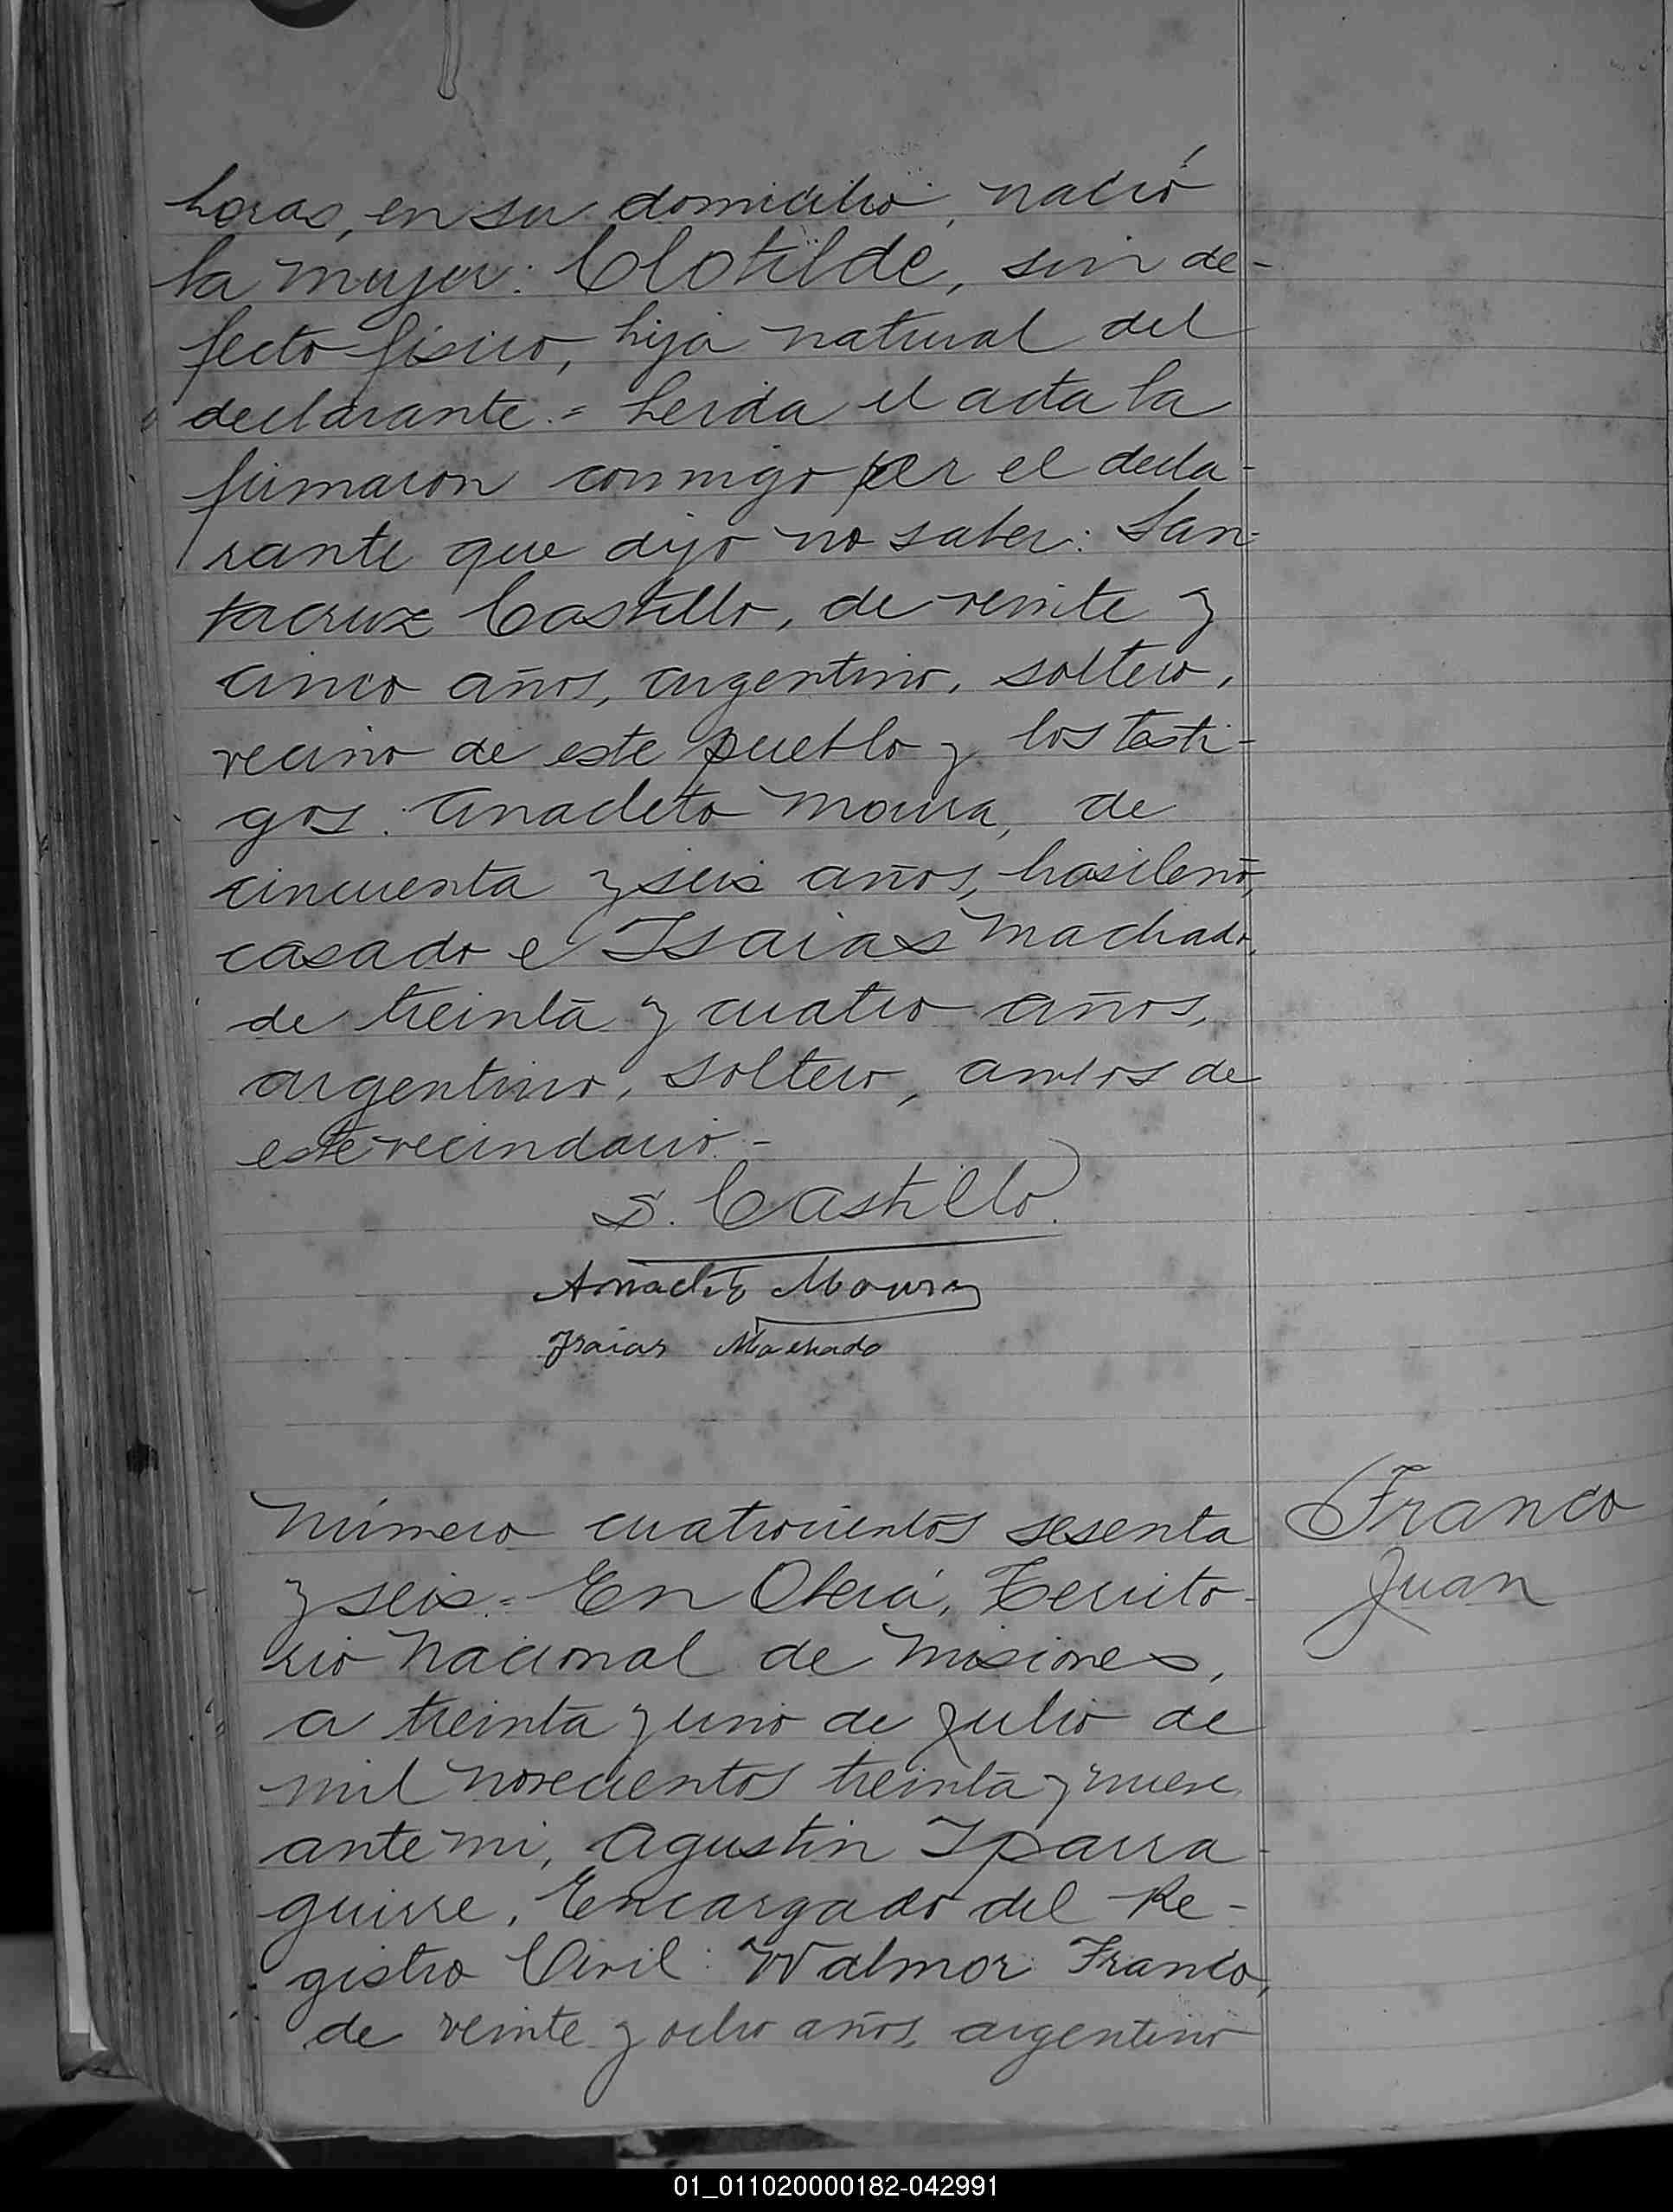 horas, en su domicilio, nació
la mujer: Clotilde, sin de-
fecto físico, hija natural del
declarante.= Leida el acta la
firmaron conmigo por el decla-
rante que dijo no saber: San-
tacruz Castillo, de veinte y
cinco años, argentino, soltero,
vecino de este pueblo y los testi-
gos: Anacleto Moura, de
cincuenta y seis años, brasileño,
casado e Isaias Machado,
de treinta y cuatro años,
argentino, soltero, ambos de
este vecindario.-
S. Castillo.
Anacleto Moura
Isaias Machado
Número cuatrocientos sesenta
y seis.= En Oberá, Territo-
rio Nacional de Misiones,
a treinta y uno de Julio de
mil novecientos treinta y nueve
ante mi, Agustin Iparra-
guirre, Encargado del Re-
gistro Civil: Walmor Franco,
de veinte y ocho años, argentino
Franco
Juan
01_011020000182-042991